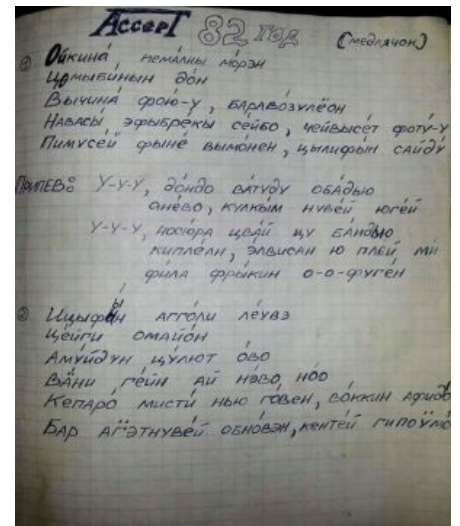 Accept 82 год (медлячок)
① Ойкина́, нема́лны мо́рэн
Цомыби́нын до́н
Вычина́ фою́-у, баравóзулёон
Навасы́ эфыбре́кы се́йбо, чейвысе́т фоту́-у
Пимусе́й фыне́ вымо́нен, цылифы́н сайду́
Припев: У-у-у, до́ндо ва́туду оба́дыо
ане́во, кулкы́м нуве́й юге́й
У-у-у, носю́ра цва́й цу ба́ндыо
кипле́лн, э́лвисан ю пле́й ми
фи́ла фры́кин о-о-фуге́н
② Ицыфы́н агго́ли ле́увэ
Це́йги омайо́н
Аму́йдун цу́лют о́во
Ва́ни, ге́йн ай нэ́во, но́о
Кепаро мисти́ нью го́вен, во́ккин афидо
Бар аг'э́тнуве́й обно́вэн, кенте́й гипоу́мо